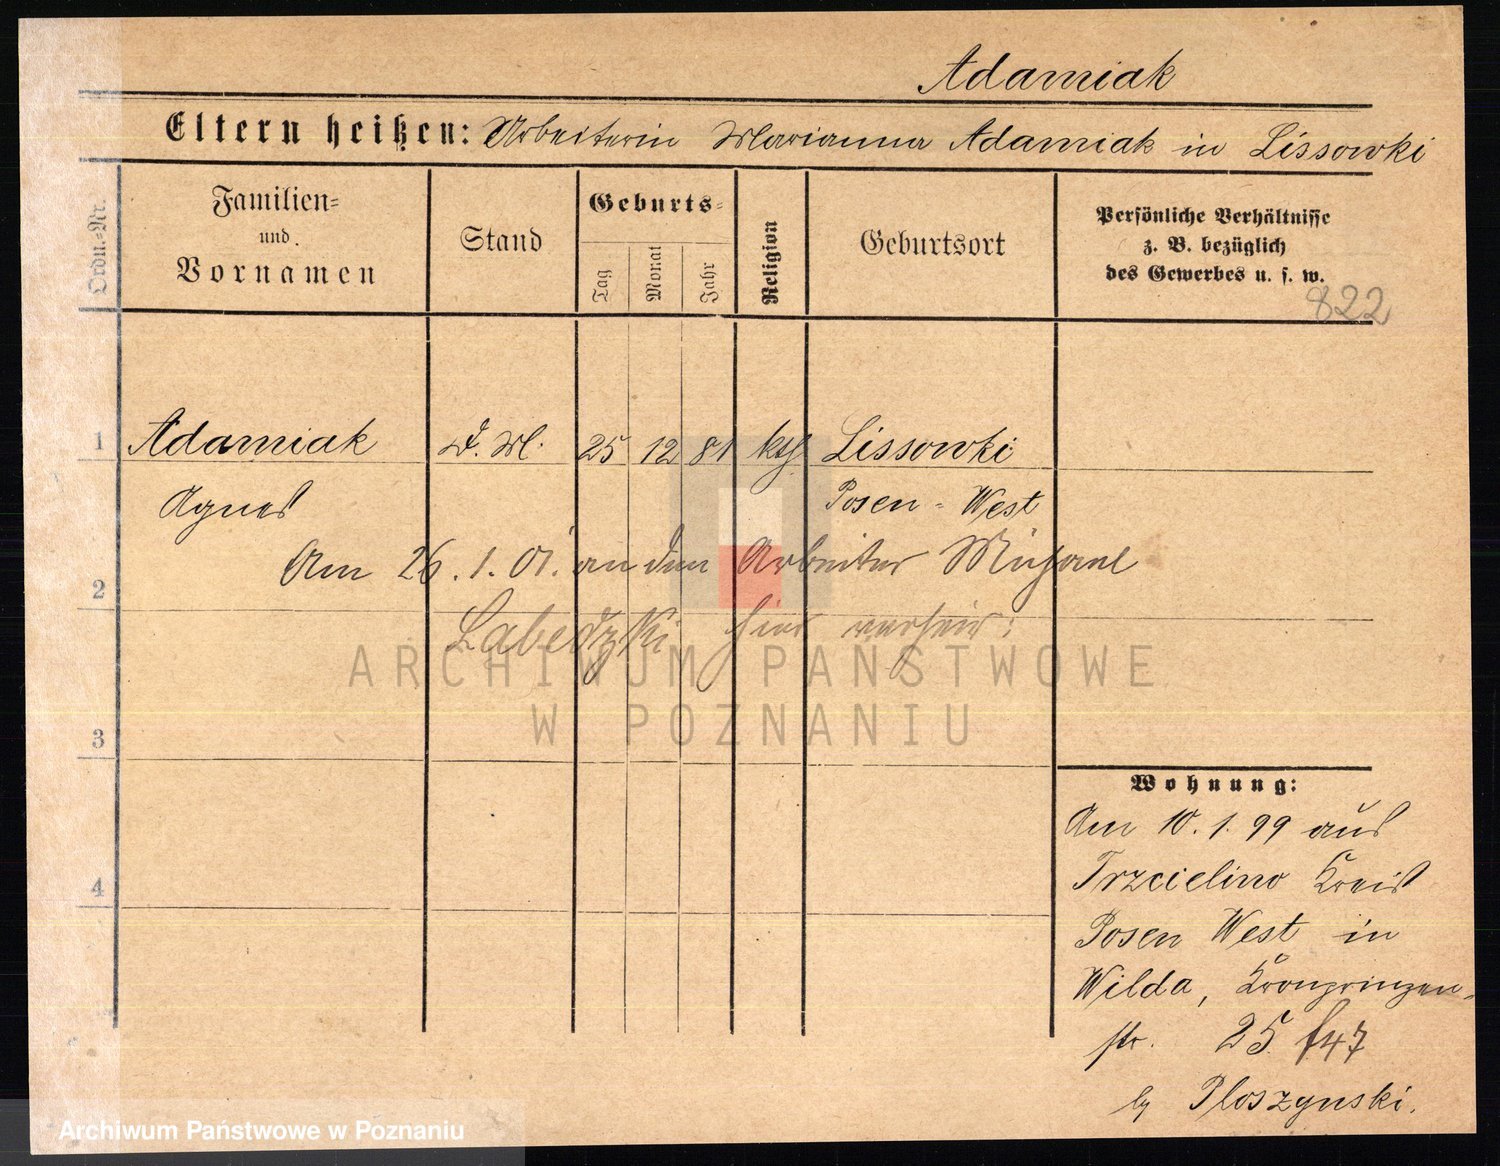 Adamiak
Eltern heißen: Arbeiterin Marianna Adamiak in Lissowki
Ordn.-Nr.
Familien-
und
Vornamen
Stand
Geburts-
Tag
Monat
Jahr
Religion
Geburtsort
Persönliche Verhältnisse
z. B. bezüglich
des Gewerbes u. s. w.
822
1 Adamiak D. M. 25 12 81 kth Lissowki
Agnes Posen-West
Am 26.1.01. an den Arbeiter Michael
2
Labedzki hier verheir:
ARCHIWUM PAŃSTWOWE
W POZNANIU
3
Wohnung:
Am 10.1.99 aus
4 Trzcielino Kreis
Posen West in
Wilda, Kronprinzen-
str. 25 f47
by Ploszynski.
Archiwum Państwowe w Poznaniu